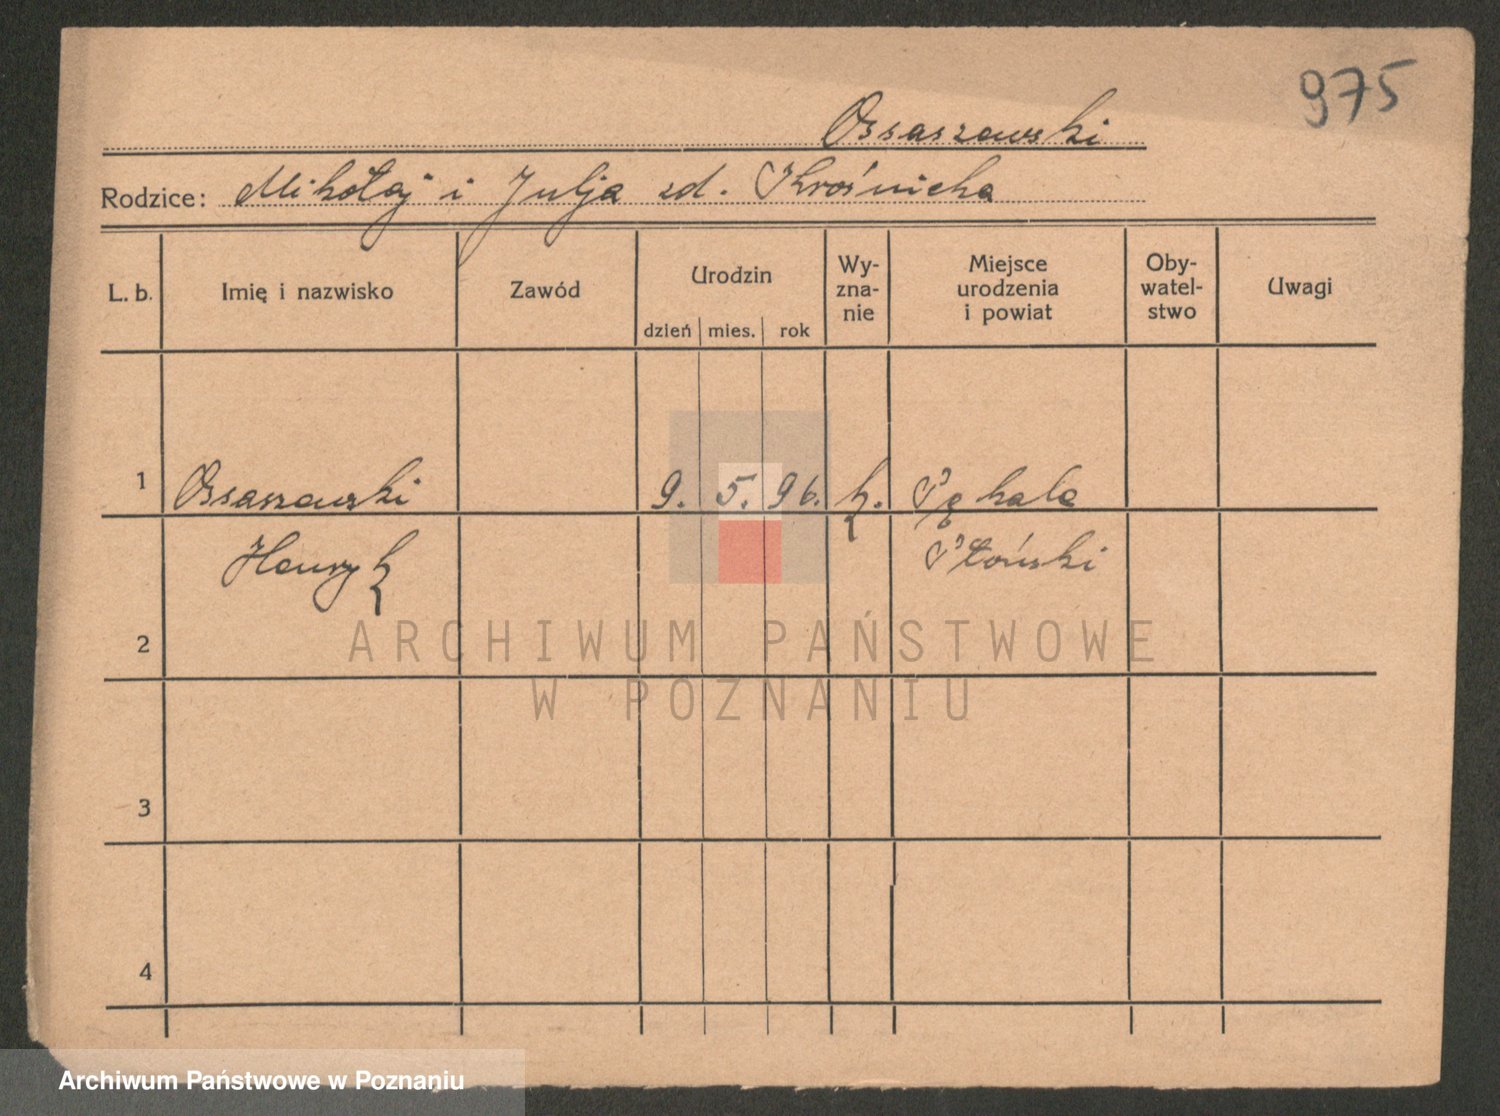 975
Ossaszewski
Rodzice: Mikołaj i Julja zd. Krośnicka
L. b. Imię i nazwisko Zawód Urodzin dzień mies. rok Wy-zna-nie Miejsce urodzenia i powiat Oby-watel-stwo Uwagi
1 Ossaszewski 9. 5. 96. k.
Henryk Płoński
2
ARCHIWUM PAŃSTWOWE
W POZNANIU
3
4
Archiwum Państwowe w Poznaniu